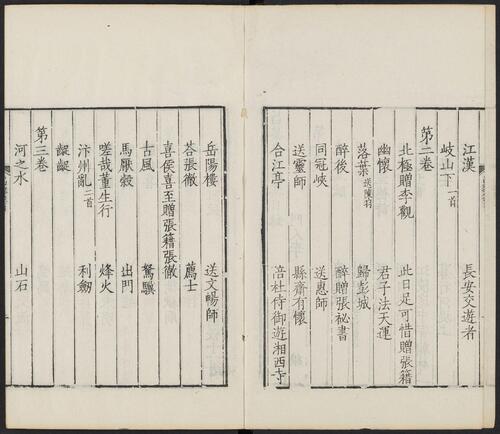 江漢 長安交遊者
岐山下一首
第二卷
北極贈李觀 此日足可惜贈張籍
幽懷 君子法天運
落葉送陳羽 歸彭城
醉後 醉贈張祕書
同冠峽 送惠師
送靈師 縣齋有懷
合江亭 陪杜侍御遊湘西寺
岳陽樓 送文暢師
荅張徹 薦士
喜侯喜至贈張籍張徹
古風 駑驥
馬厭穀 出門
嗟哉董生行 烽火
汴州亂二首 利劒
齪齪
第三卷
河之水 山石